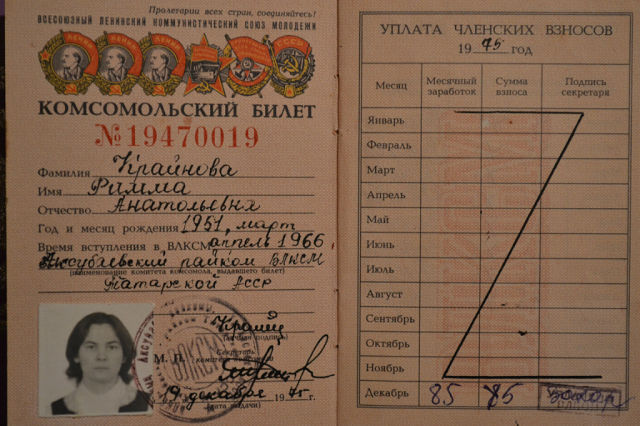 Пролетарии всех стран, соединяйтесь!
ВСЕСОЮЗНЫЙ ЛЕНИНСКИЙ КОММУНИСТИЧЕСКИЙ СОЮЗ МОЛОДЕЖИ
КОМСОМОЛЬСКИЙ БИЛЕТ
№19470019
Фамилия Крайнова
Имя Римма
Отчество Анатольевна
Год и месяц рождения 1951, март
Время вступления в ВЛКСМ апрель 1966
Аксубаевский райком ВЛКСМ
(наименование комитета комсомола, выдавшего билет)
Татарской АССР
(личная подпись)
М. П. Секретарь
комитета комсомола
ВЛКСМ
19 декабря 1975г.
(дата выдачи)
УПЛАТА ЧЛЕНСКИХ ВЗНОСОВ
1975 год
Месяц Месячный заработок Сумма взноса Подпись секретаря
Январь
Февраль
Март
Апрель
Май
Июнь
Июль
Август
Сентябрь
Октябрь
Ноябрь
Декабрь 85